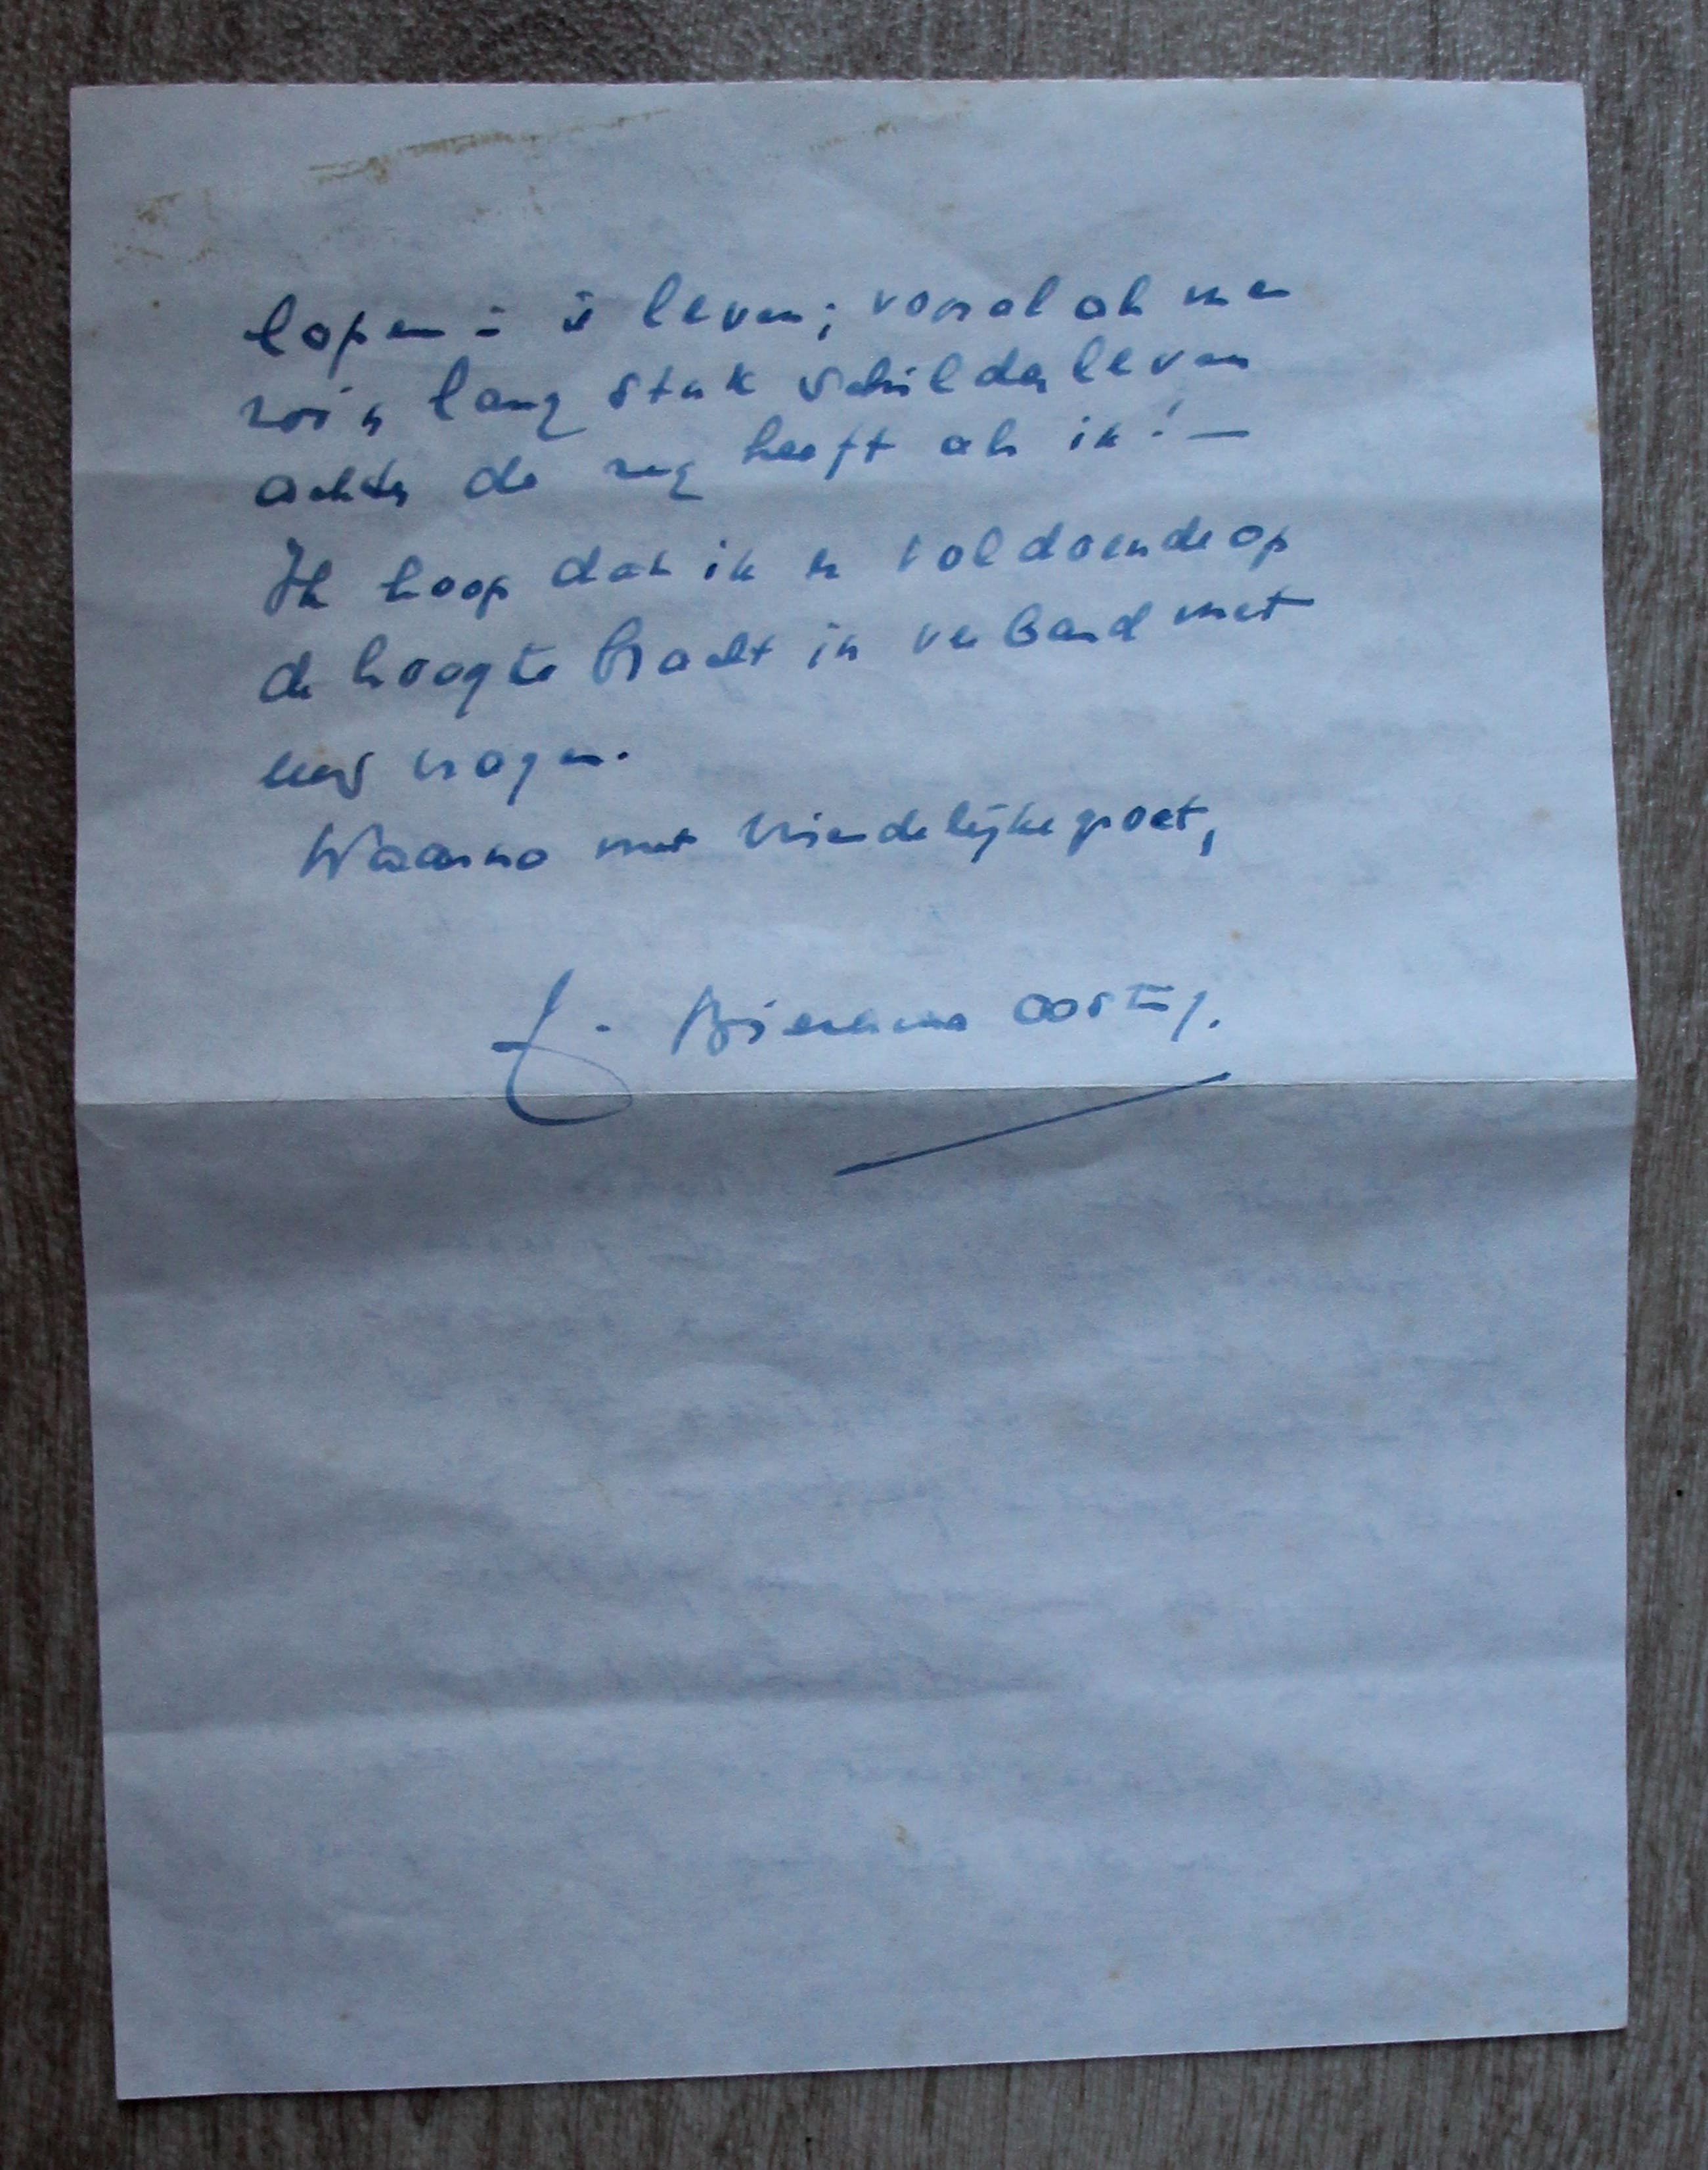 lopen in 't leven; vooral als men
zoo'n lang stuk schildersleven
achter de rug heeft als ik! —
Ik hoop dat ik u voldoende op
de hoogte bracht in verband met
uw vragen.
Waarna met vriendelijke groet,
J. Bieruma Oosting.